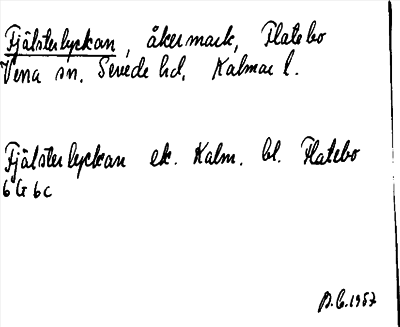 Fjälsterlyckan, åkermark, Flatebo
Vena sn. Sevede hd, Kalmar l.
Fjälsterlyckan ek. Kalm. bl. Flatebo
6 G 6 c
B.C. 1957